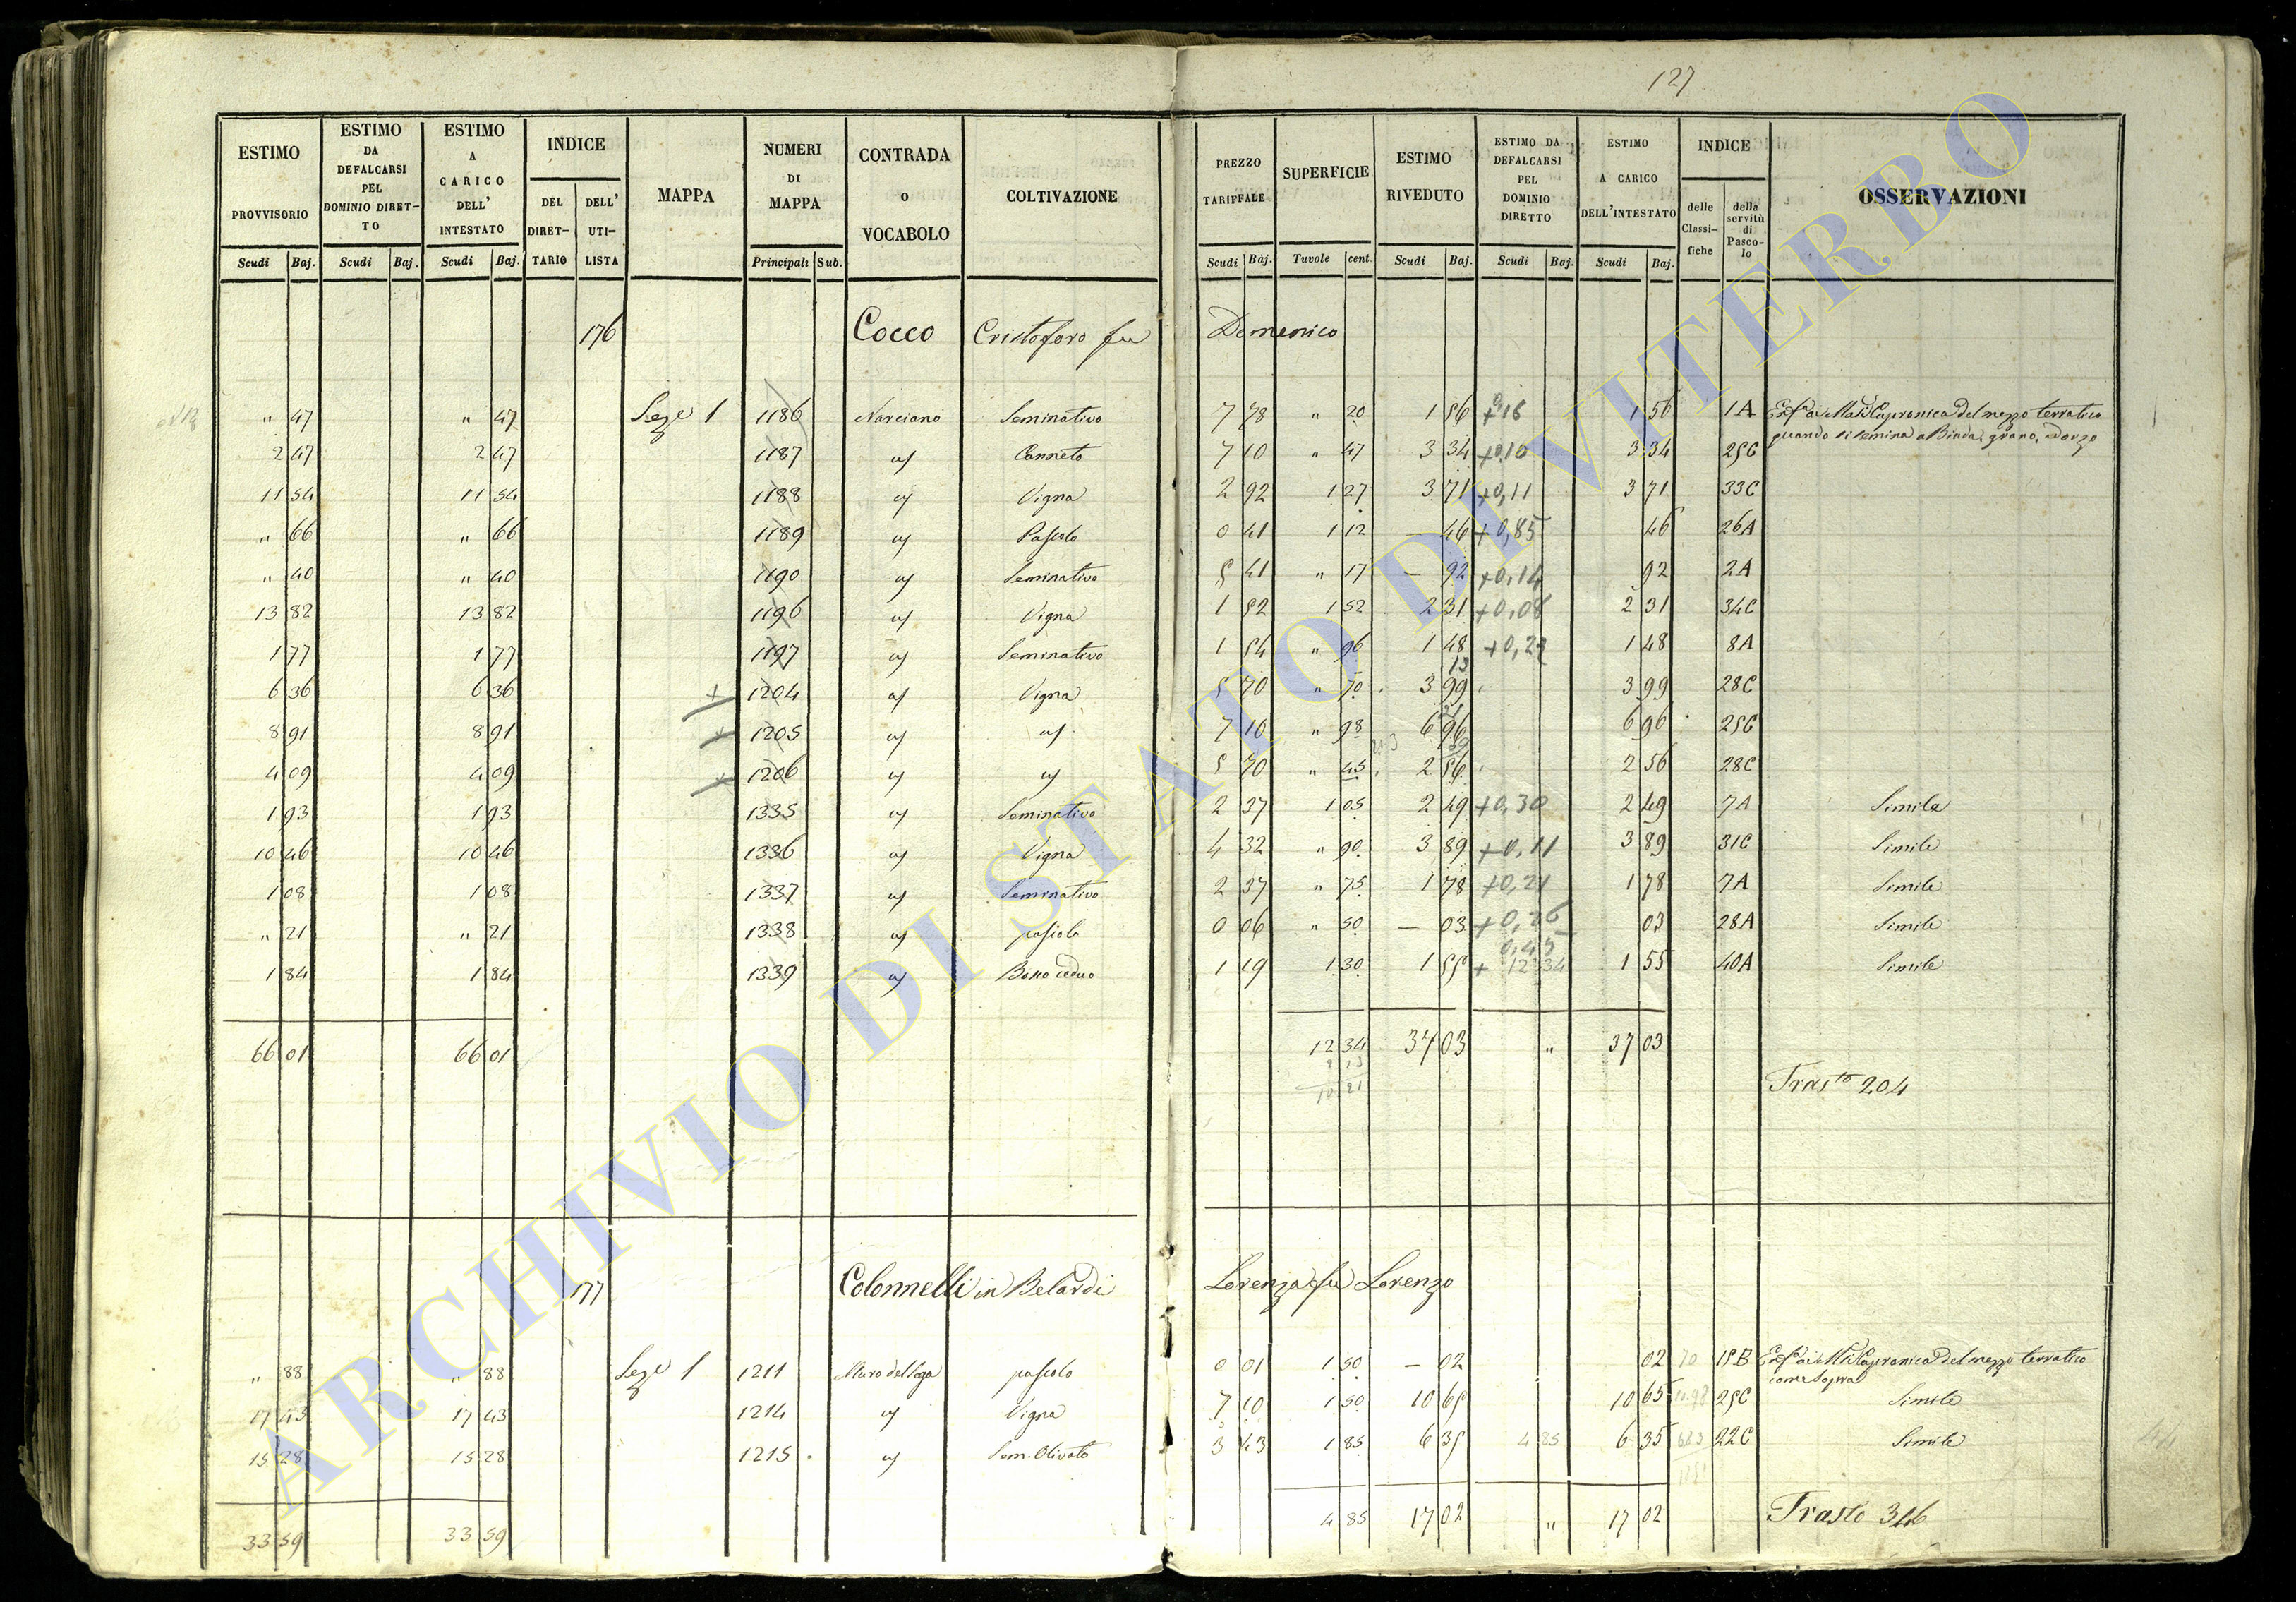 127
ESTIMO PROVVISORIO | ESTIMO DA DEFALCARSI PEL DOMINIO DIRET-TO | ESTIMO A CARICO DELL' INTESTATO | INDICE | MAPPA | NUMERI DI MAPPA | CONTRADA o VOCABOLO | COLTIVAZIONE | PREZZO TARIFFALE | SUPERFICIE | ESTIMO RIVEDUTO | ESTIMO DA DEFALCARSI PEL DOMINIO DIRETTO | ESTIMO A CARICO DELL'INTESTATO | INDICE | OSSERVAZIONI
Scudi | Baj. | Scudi | Baj. | Scudi | Baj. | DEL DIRET-TARIO | DELL' UTI-LISTA | Principali | Sub. | Scudi | Baj. | Tavole | cent. | Scudi | Baj. | Scudi | Baj. | Scudi | Baj. | delle Classi-fiche | della servitù di Pasco-lo
176 Cocco Cristoforo fu Domenico
" 47 | " 47 | Seze 1 | 1186 | Narciano | Seminativo | 7 78 | " 20 | 1 56 | +0,16 | 1 56 | 1A | Capranica del mezzo terratico
quando si semina a Biada, grano, ed orzo
2 47 | 2 47 | 1187 | " | Canneto | 7 10 | " 47 | 3 34 | +0,10 | 3 34 | 25C
11 54 | 11 54 | 1188 | " | Vigna | 2 92 | 1 27 | 3 71 | +0,11 | 3 71 | 33C
" 66 | " 66 | 1189 | " | Pascolo | 0 41 | 1 12 | — 46 | +0,85 | 46 | 26A
" 40 | " 40 | 1190 | " | Seminativo | 5 41 | " 17 | — 92 | +0,14 | 92 | 2A
13 82 | 13 82 | 1196 | " | Vigna | 1 52 | 1 52 | 2 31 | +0,08 | 2 31 | 34C
1 77 | 1 77 | 1197 | " | Seminativo | 1 54 | " 96 | 1 48 | 1 48 | 8A
6 36 | 6 36 | + | 1204 | " | Vigna | 5 70 | " 70 | 3 99 | 3 99 | 28C
8 91 | 8 91 | + | 1205 | " | " | 7 10 | " 98 | 6 96 | 6 96 | 25C
4 09 | 4 09 | + | 1206 | " | " | 5 70 | " 45 | 2 56 | 2 56 | 28C
1 93 | 1 93 | 1335 | " | Seminativo | 2 37 | 1 05 | 2 49 | +0,30 | 2 49 | 7A | Simile
10 46 | 10 46 | 1336 | " | Vigna | 4 32 | " 90 | 3 89 | +0,11 | 3 89 | 31C | Simile
1 08 | 1 08 | 1337 | " | Seminativo | 2 37 | " 75 | 1 78 | +0,21 | 1 78 | 7A | Simile
" 21 | " 21 | 1338 | " | pascolo | 0 06 | " 50 | — 03 | +0,26 | 03 | 28A | Simile
1 84 | 1 84 | 1339 | " | Bosco ceduo | 1 19 | 1 30 | 1 55 | + 12 34 | 1 55 | 40A | Simile
66 01 | 66 01 | 12 34 | 37 03 | " | 37 03
2 13
10 21
Trasto 204
177 Colonnelli in Belardi Lorenza fu Lorenzo
" 88 | " 88 | Seze 1 | 1211 | Muro | pascolo | 0 01 | 1 50 | — 02 | 02 | 15B | Capranica del mezzo terratico
come sopra
17 43 | 17 43 | 1214 | " | Vigna | 7 10 | 1 50 | 10 65 | 10 65 | 25C | Simile
15 28 | 15 28 | 1215 | " | Sem. Olivato | 3 43 | 1 85 | 6 35 | 4 85 | 6 35 | 22C | Simile
33 59 | 33 59 | 4 85 | 17 02 | " | 17 02 | Trasto 346
ARCHIVIO DI STATO DI VITERBO